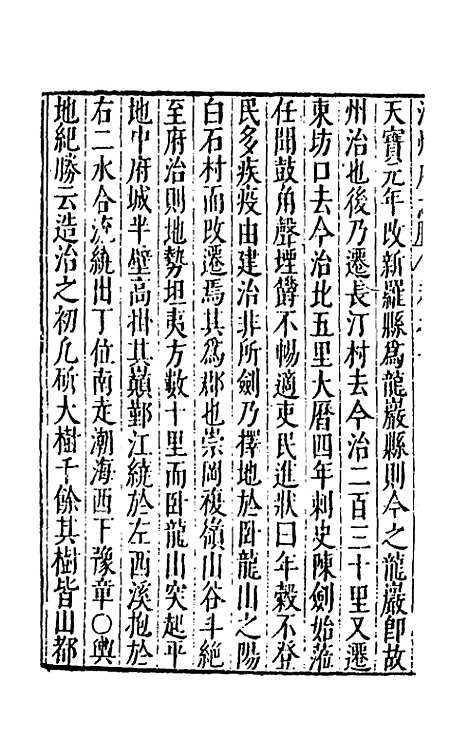 天寶元年改新羅縣爲龍巖縣則今之龍巖卽故
州治也後乃遷長汀村去今治二百三十里又遷
東坊口去今治北五里大曆四年刺史陳劍始蒞
任聞鼓角聲堙欝不暢適吏民進狀曰年糓不登
民多疾疫由建治非所劍乃擇地於卧龍山之陽
白石村而改遷焉其爲郡也崇岡複嶺山谷斗絶
至府治則地勢坦夷方數十里而卧龍山突起平
地中府城半壁高掛其巔鄞江繞於左西溪抱於
右二水合流繞出丁位南走潮海西下豫章〇輿
地紀勝云造治之初凡斫大樹千餘其樹皆山都